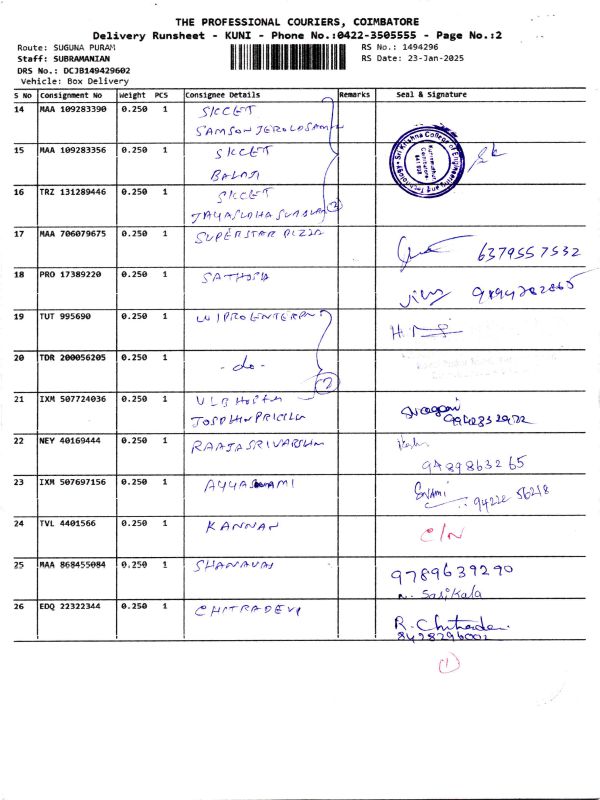 THE PROFESSIONAL COURIERS, COIMBATORE
Delivery Runsheet - KUNI - Phone No.:0422-3505555 - Page No.:2
Route: SUGUNA PURAM
RS No.: 1494296
Staff: SUBRAMANIAN
RS Date: 23-Jan-2025
DRS No.: DCJB149429602
Vehicle: Box Delivery
S No Consignment No Weight PCS Consignee Details Remarks Seal & Signature
14 MAA 109283390 0.250 1 SKCET
SAMSON JEROLDSAM
15 MAA 109283356 0.250 1 SKCET
BALAJI
Sri Krishna College of Engineering and Technology
Kuniamuthur
Coimbatore
641 008
16 TRZ 131289446 0.250 1 SKCET
3
17 MAA 706079675 0.250 1 SUPERSTAR PIZZA
6379557532
18 PRO 17389220 0.250 1 SATHOSH
9894782865
19 TUT 995690 0.250 1 WIPRO ENTERPR
20 TDR 200056205 0.250 1 - do -
2
21 IXM 507724036 0.250 1 VLB
9942832922
22 NEY 40169444 0.250 1 RAAJASRIVARSHN
9489863265
23 IXM 507697156 0.250 1 AYYASWAMI
Swami
94222 56218
24 TVL 4401566 0.250 1 KANNAN
C/N
25 MAA 868455084 0.250 1 SHANAVAS
9789639290
n. Sasikala
26 EDQ 22322344 0.250 1 CHITRADEVI
R. Chitradevi
8428296002
1